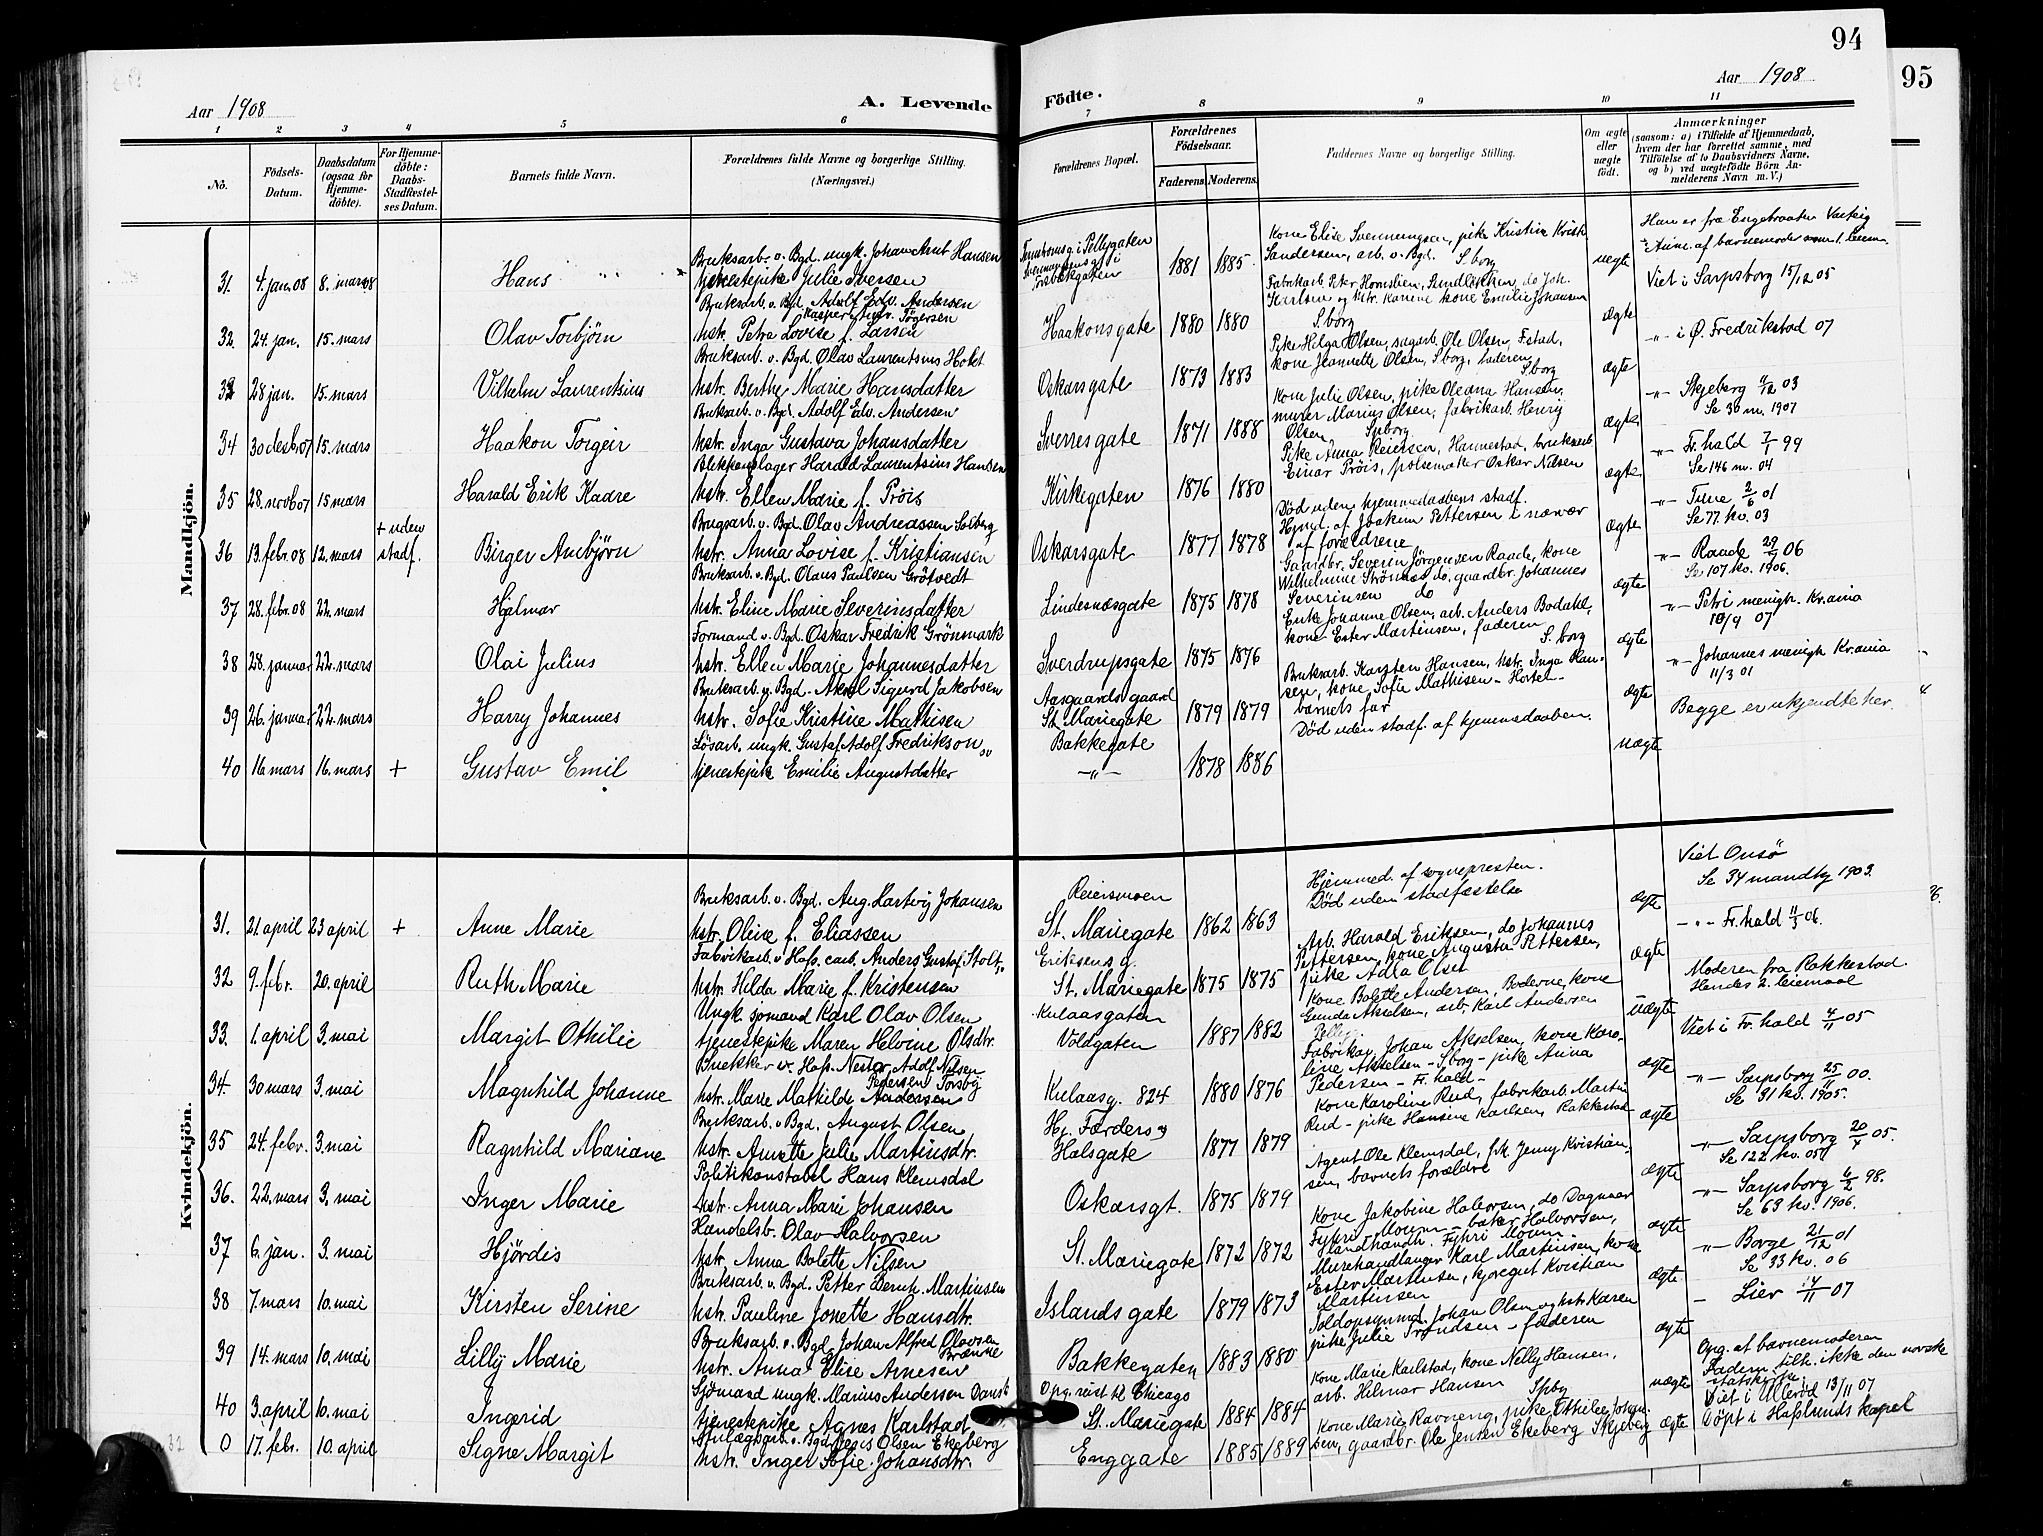 94
95
Aar 1908
A. Levende Födte.
Aar 1908
1 2 3 4 5 6 7 8 9 10 11
No.
Födsels-Datum.
Daabsdatum (ogsaa for Hjemme-döbte).
For Hjemme-döbte: Daabs-Stadfæstel-ses Datum.
Barnets fulde Navn.
Forældrenes fulde Navne og borgerlige Stilling. (Næringsvei.)
Forældrenes Bopæl.
Forældrenes Födselsaar.
Faderens. Moderens.
Faddernes Navne og borgerlige Stilling.
Om ægte eller uægte födt.
Anmærkninger
(saasom: a) i Tilfælde af Hjemmedaab, hvem der har forrettet samme, med Tilföielse af to Daabsvidners Navne, og b) ved uægtefödte Börn An-melderens Navn m. V.)
Mandkjön.
31. 4. jan. 08 8. mars 08 Hans
Bruksarb. v. Bgd. ungk. Johan Arnt Hansen
tjenestepike Julie Iversen
1881 1885
Kone Elise Svenningsen, pike Kristine
Sandersen, arb. v. Bgd. S.borg
uegte
Han er fra Engebraaten Varteig
32. 24. jan. 15. mars Olav Torbjörn
Bruksarb. v. Bgd. Adolf Edv. Andersen
hstr. Petra Lovise f. Larsen
Haakonsgate 1880 1880
Fabrikarb. Peter Hornslien, Sundlökken, do Joh.
Karlsen og hstr. Karine kone Emilie Johansen
S.borg
ægte
Viet i Sarpsborg 15/12 05
33 28 jan. 15. mars Vilhelm Laurentsius
Bruksarb. v. Bgd. Olav Laurentsius Holst
hstr. Berthe Marie Hansdatter
Oskarsgate 1873 1883
Pike Helga Olsen, sagarb. Ole Olsen, F.stad,
kone Jeannette Olsen, S.borg, faderen
S.borg
ægte
-"- i Ø. Fredrikstad 07
34 30 desb. 07 15. mars Haakon Torgeir
Bruksarb. v. Bgd. Adolf Edv. Andersen
hstr. Inga Gustava Johansdatter
Sverresgate 1871 1888
Kone Julie Olsen, pike Oleana Hansen,
murer Marius Olsen, fabrikarb. Henry
Olsen, S.borg
ægte
-"- Skjeberg 03
Se 30 m. 1907
35 28. novb 07 15 mars Harald Erik Kadre
Blekkenslager Harald Laurentsius Hansen
hstr. Ellen Marie f. Pröis
Kirkegaten 1876 1880
Pike Anna Reiersen, Hannestad, bruksarb
Einar Pröis, pölsemaker Oskar Nilsen
ægte
-"- Fr.hald 7/1 99
Se 146 m. 04
36 13. febr. 08 12. mars + uden stadf. Birger Ambjörn
Brugsarb. v. Bgd. Olav Andreassen Solberg
hstr. Anna Lovise f. Kristiansen
Oskarsgate 1877 1878
Död uden hjemmedaabens stadf.
Hjmd. af Joakim Pettersen i nærvær
af forældrene
ægte
-"- Tune 2/6 01
Se 77 kv. 03
37 28. febr. 08 22. mars Hjalmar
Bruksarb. v. Bgd. Olaus Paulsen Grötvedt
hstr. Eline Marie Severinsdatter
Lindesnæsgate 1875 1878
Gaardbr. Severin Jörgensen Raade, kone
Wilhelmine Strömnes do, gaardbr Johannes
Severinsen do
ægte
-"- Raade 06
Se 107 kv. 1906.
38 28. januar 22. mars Olai Julius
Formand v. Bgd. Oskar Fredrik Grönsmark
hstr. Ellen Marie Johannesdatter
Sverdrupsgate 1875 1876
Enke Johanne Olsen, arb. Anders Bodahl,
kone Ester Martinsen, faderen
S. borg
ægte
-"- Petri menigh. Kr.ania
10/9 07
39 26. januar 22. mars Harry Johannes
Bruksarb. v. Bgd. Aksel Sigurd Jakobsen
hstr. Sofie Kristine Mathisen
Aasgaards gaard
St. Mariegate 1879 1879
Bruksarb. Karsten Hansen, hstr. Inga Han-
sen, kone Sofie Mathisen - Horten -
barnets far
ægte
-"- Johannes menigh. Kr.ania
11/3 01
40 16 mars 16. mars + Gustav Emil
Lösarb. ungk. Gustaf Adolf Fredrikson
tjenestepik Emilie Augustdatter
Bakkegate
-"- 1878 1886
Död uden stadf. af hjemmedaaben.
uægte
Begge er ukjendte her.
Kvindekjön.
31. 21. april 23 april + Anne Marie
Bruksarb. v. Bgd. Aug. Hartvig Johansen
hstr. Oline f. Eliassen
Reiersmoen
St. Mariegate 1862 1863
Hjemmed. af sognepresten.
Död uden stadfæstelse
ægte
Viet Onsö
Se 34 mandkj 1903.
32 9. febr. 20. april Ruth Marie
Fabrikarb. v. Hafs. carb. Anders Gustaf Stolt
hstr. Hilda Marie f. Kristensen
Eriksens g.
St. Mariegate 1875 1875
Arb. Harald Eriksen, do Johannes
Pettersen, kone Augusta Pettersen,
pike Adla Olsen
ægte
-"- Fr.hald 06.
33. 1. april 3. mai Margit Othilie
Ungk. sjömand Karl Olav Olsen
tjenestepike Maren Helvine Olsdtr.
Kulaasgaten
Voldgaten 1887 1882
Kone Bolette Andersen, Boderne, kone
Gunda Akselsen, arb. Karl Andersen
uægte
Moderen fra Rakkestad.
Hendes 2. leiemaal
34. 30 mars 3. mai Magnhild Johanne
Brækker v. Hafs. Nestor Adolf Nilsen
hstr. Marie Mathilde Andersen
Pedersen Torsbg
Kulaasg. 824 1880 1876
Fabrikar. Johan Akselsen, kone Karo-
line Akselsen - S.borg - pike Anna
Pedersen - Fr.hald -
ægte
Viet i Fr.hald 4/11 05
35 24. febr. 3. mai Ragnhild Mariane
Bruksarb. v. Bgd. August Olsen
hstr. Anette Julie Martinsdtr.
Hj. Færders og
Halsgate 1877 1879
Kone Karoline Rud, fabrikarb. Martin
Rud - pike Hansine Karlsen, Rakkestad
ægte
-"- Sarpsborg 25/11 00.
Se 91 kv. 1905.
36. 22. mars 3. mai Inger Marie
Politikonstabel Hans Klemsdal
hstr. Anna Marie Johansen
Oskarsgt. 1875 1879
Agent Ole Klemsdal, frk Jenny Kristian-
sen, barnets forældre
ægte
-"- Sarpsborg 20/4 05.
Se 122 kv. 05
37 6. jan. 3. mai Hjördis
Handelsb. Olav Halvorsen
hstr. Anna Bolette Nilsen
St. Mariegate 1872 1872
Kone Jakobine Halvorsen, do Dagmar
Fyhri Moum - baker Halvorsen,
landhandl. Fyhri Moum
ægte
-"- Sarpsborg 6/2 98.
Se 69 kv. 1906.
38 7. mars 10. mai Kirsten Serine
Bruksarb. v. Bgd. Petter Bernh. Martinsen
hstr. Pauline Jonette Hansdtr.
Islands gate 1879 1873
Murehandlanger Karl Martinsen, kone
Ester Martinsen, kjöregut Kristian
Martinsen
ægte
-"- Borge 21/12 01
Se 33 kv. 06
39 14. mars 10. mai Lilly Marie
Bruksarb. v. Bgd. Johan Alfred Olavsen
Brænne
hstr. Anna Elise Arnesen
Bakkegaten 1883 1880
Toldopsynmd. Johan Olsen og hstr. Karen
pike Julie Trondsen - faderen
ægte
- Lier 11 07
40 3. april 10. mai Ingerid
Sjömand ungk. Marius Andersen Dansk
tjenestepike Agnes Karlstad
Opg. reist til Chicago
St. Mariegate 1884 1884
Kone Marie Karlstad, kone Nelly Hansen,
arb. Hilmar Hansen Spbg
uægte
Opg. af barnemoderen
Fadern tilh. ikke den norske
statskirke.
0 17. febr. 10. april Signe Margit
Anlægsarb. v. Bgd. Olsen Ekeberg
hstr. Inger Sofie Johansdtr.
Enggate 1885 1889
Kone Marie Ravneng, pike Othilie Johan-
sen, gaardbr. Ole Jensen Ekeberg Skjeberg
ægte
Viet i Ulleröd 13/11 07
Döpt i Hafslunds kapel